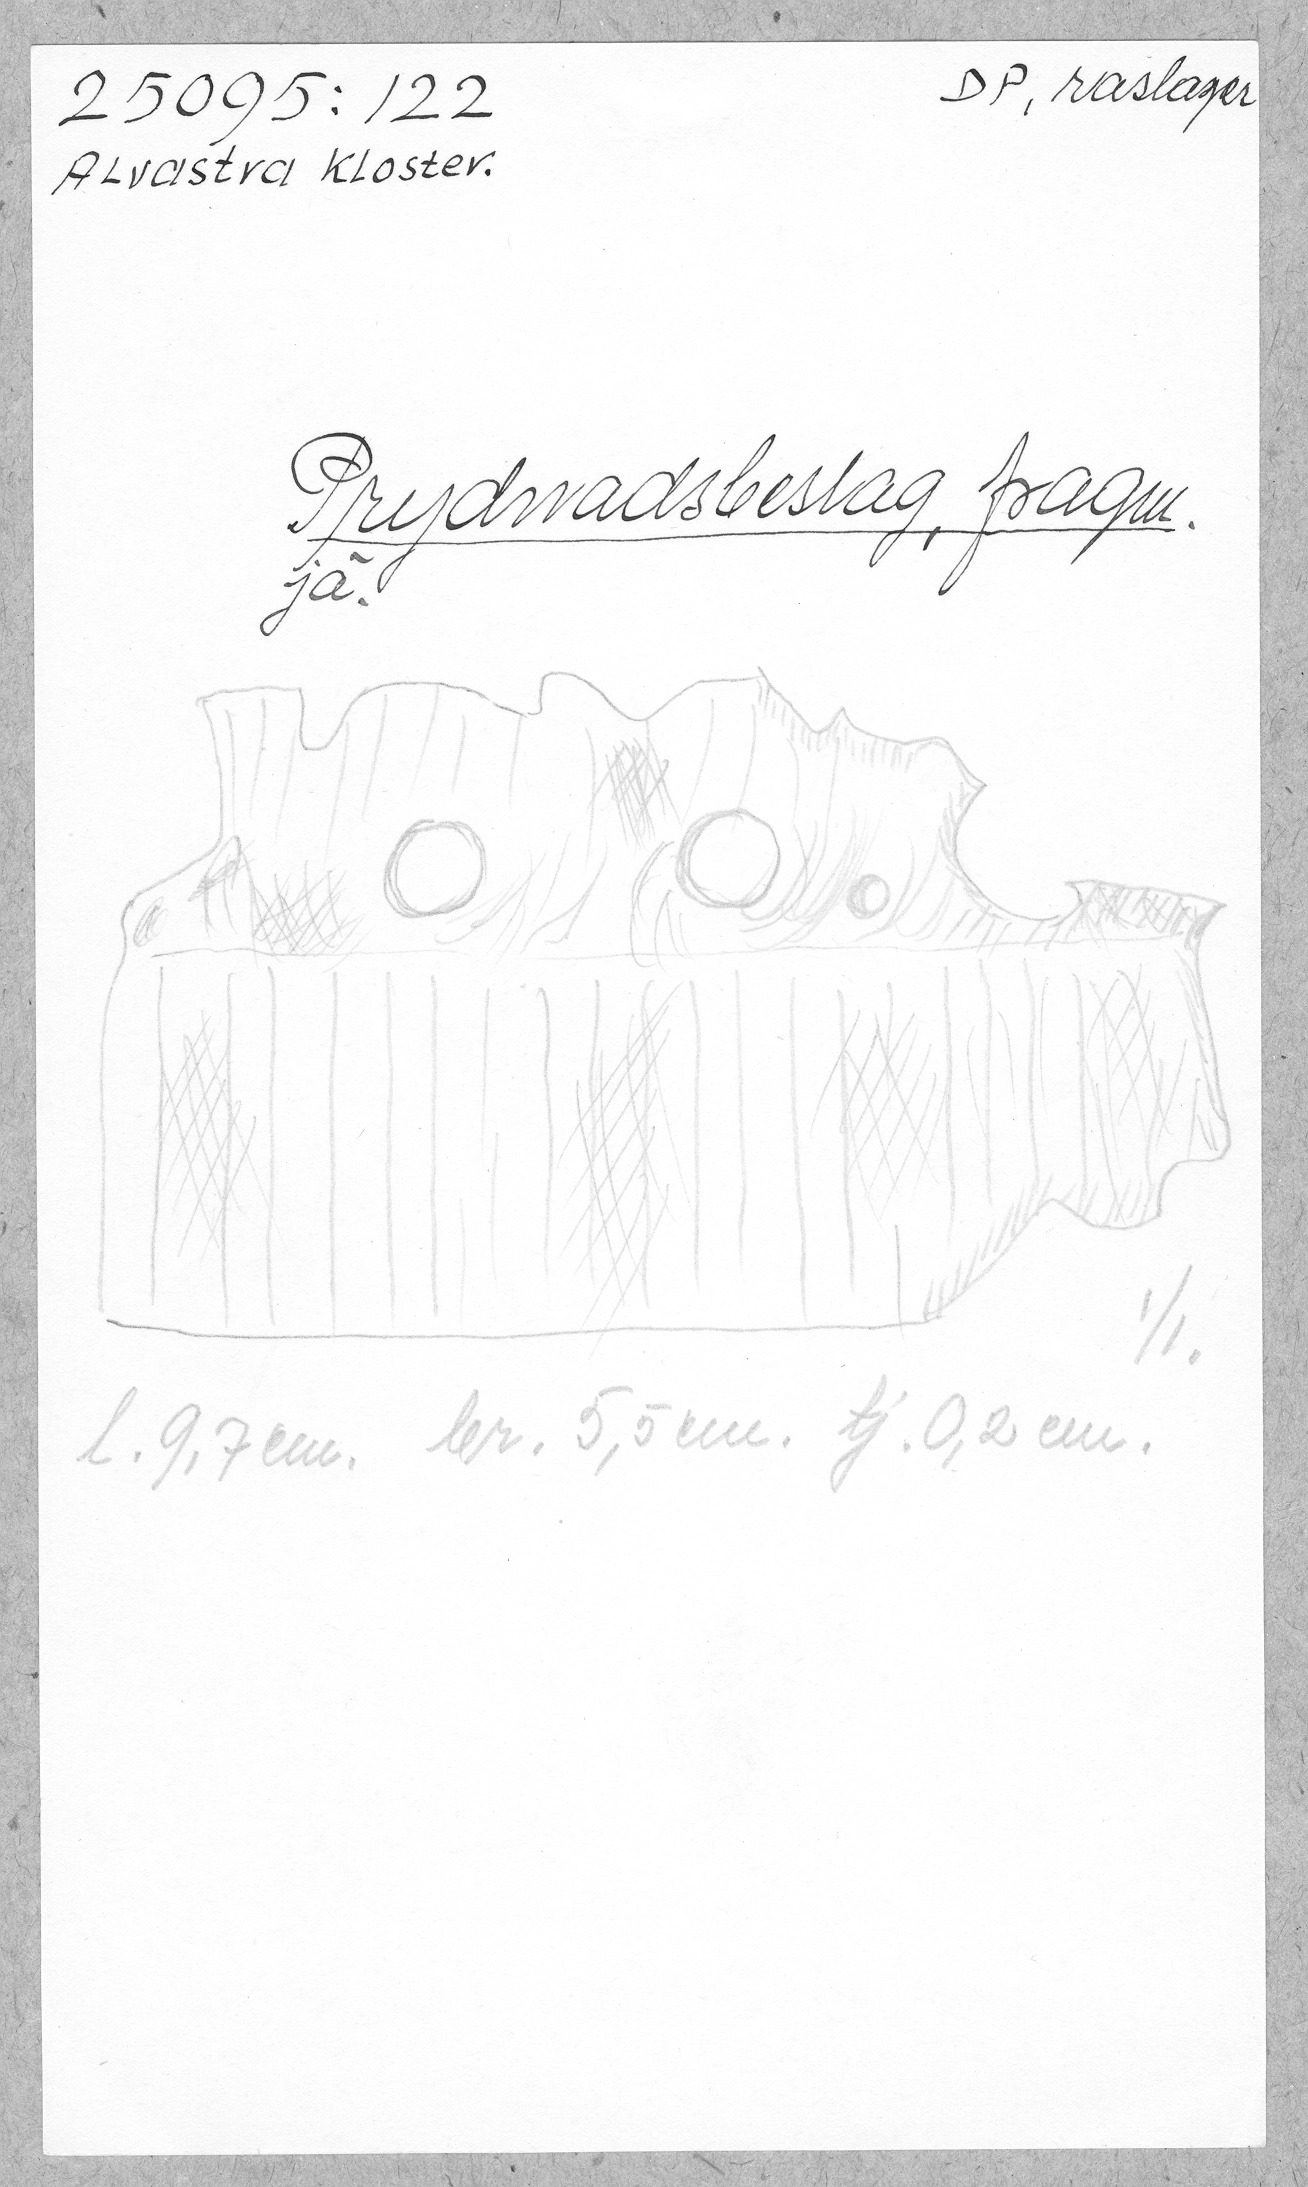 25095:122
DP, raslager
Alvastra Kloster.
Prydnadsbeslag, fragm.
jä.
1/1.
l. 9,7 cm. br. 5,5 cm. tj. 0,2 cm.